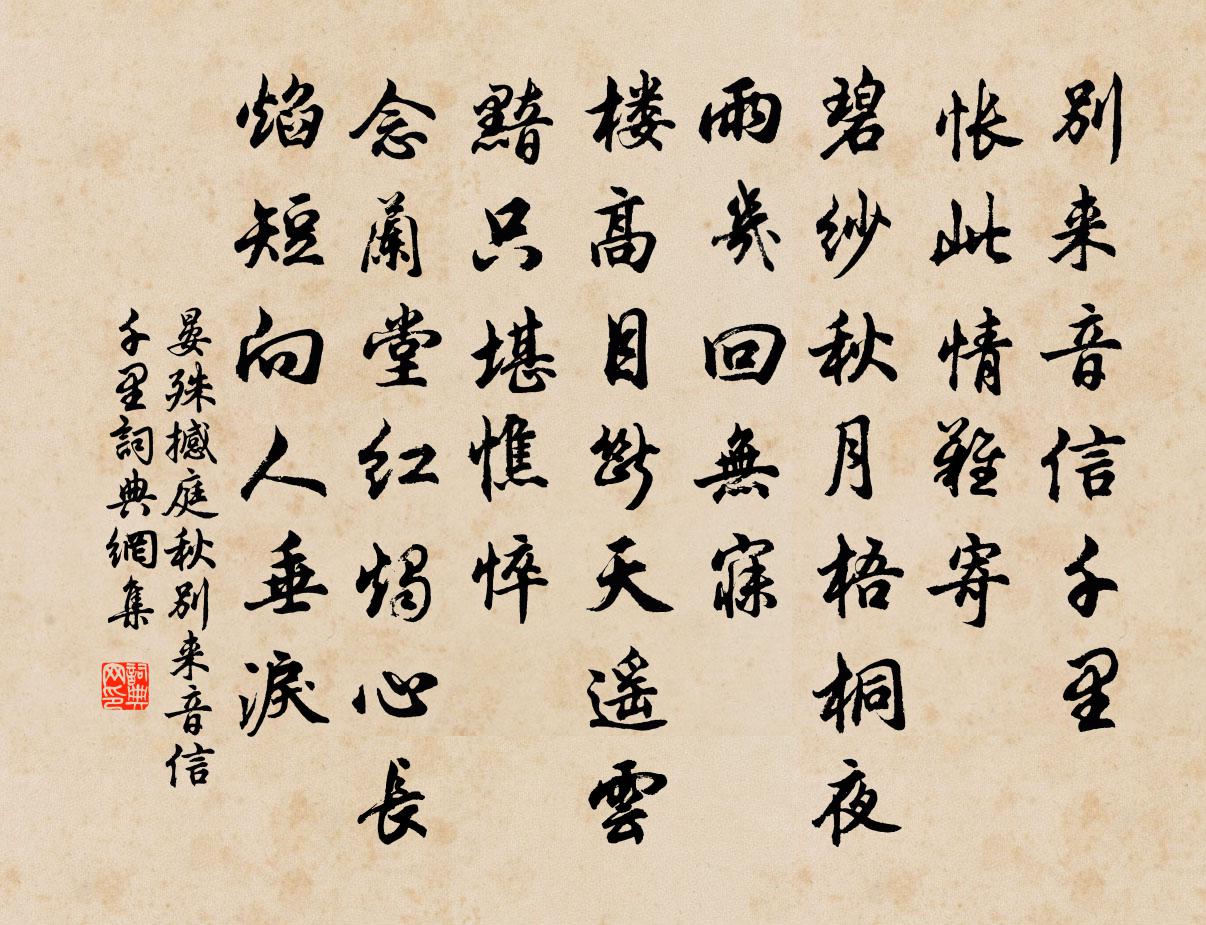 别来音信千里
怅此情難寄
碧纱秋月梧桐夜
雨幾回無寐
楼高目断天遥雲
黯只堪憔悴
念蘭堂红烛心長
焰短向人垂淚
晏殊撼庭秋别来音信
千里詞典網集
詞典
网印